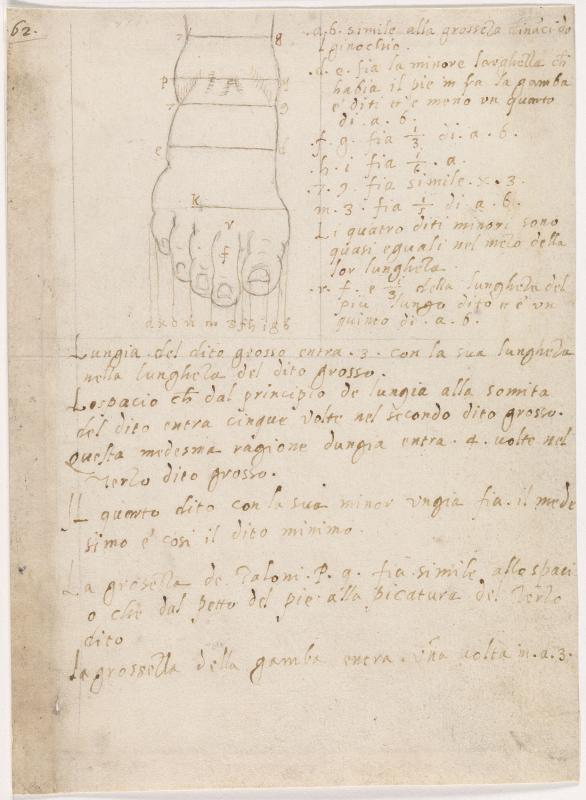 62.
7 8
p q
7 9
e d
k
r
f
a x o n m 3 f h i g b
.a.b. simile alla grossezza dināci do
ginochio.
.d. e. fia la minore larghezza ch̄
habia il pie m fra la gamba
e' diti et e' meno un quarto
di .a. b.
.f. g. fia 1/3 di .a. b.
.h. i fia 1/6 .a.
.7. 9. fia simile .x. 3.
m. 3. fia di a. b.
Li quatro diti minori sono
quasi eguali nel mezo della
lor lungheza.
.r. f. e 1/3 della lungheza del
piu lungo dito et e' un
quinto di .a. b.
Lungia del dito grosso entra .3. con la sua lungheza
nella lungheza del dito grosso.
Lo spacio ch̄ dal principio de lungia alla somita
del dito entra cinque volte nel secondo dito grosso.
Questa medesma ragione dungia entra .4. volte nel
Terzo dito grosso.
Il quarto dito con la sua minor ungia fia .il mede
simo e' cosi il dito minimo.
La grosezza de Taloni .P. q. fia simile allo spaci
o che dal petto del pie alla picatura del Terzo
dito
La grossezza della gamba entra .una volta in .a. 3.